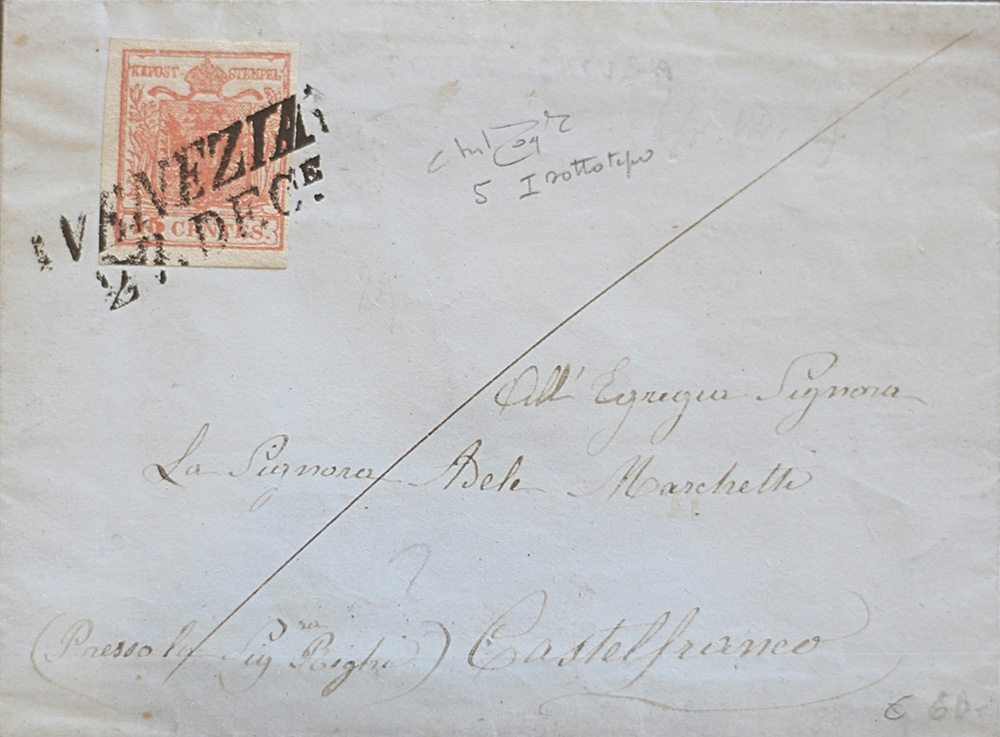 KKPOST-STEMPEL
VENEZIA
15 CENTES.
21. DECE.
5 I sottotipo
All' Egregia Signora
La Signora Adele Marchetti
(Presso la Sigra Righi) Castelfranco
€ 60-